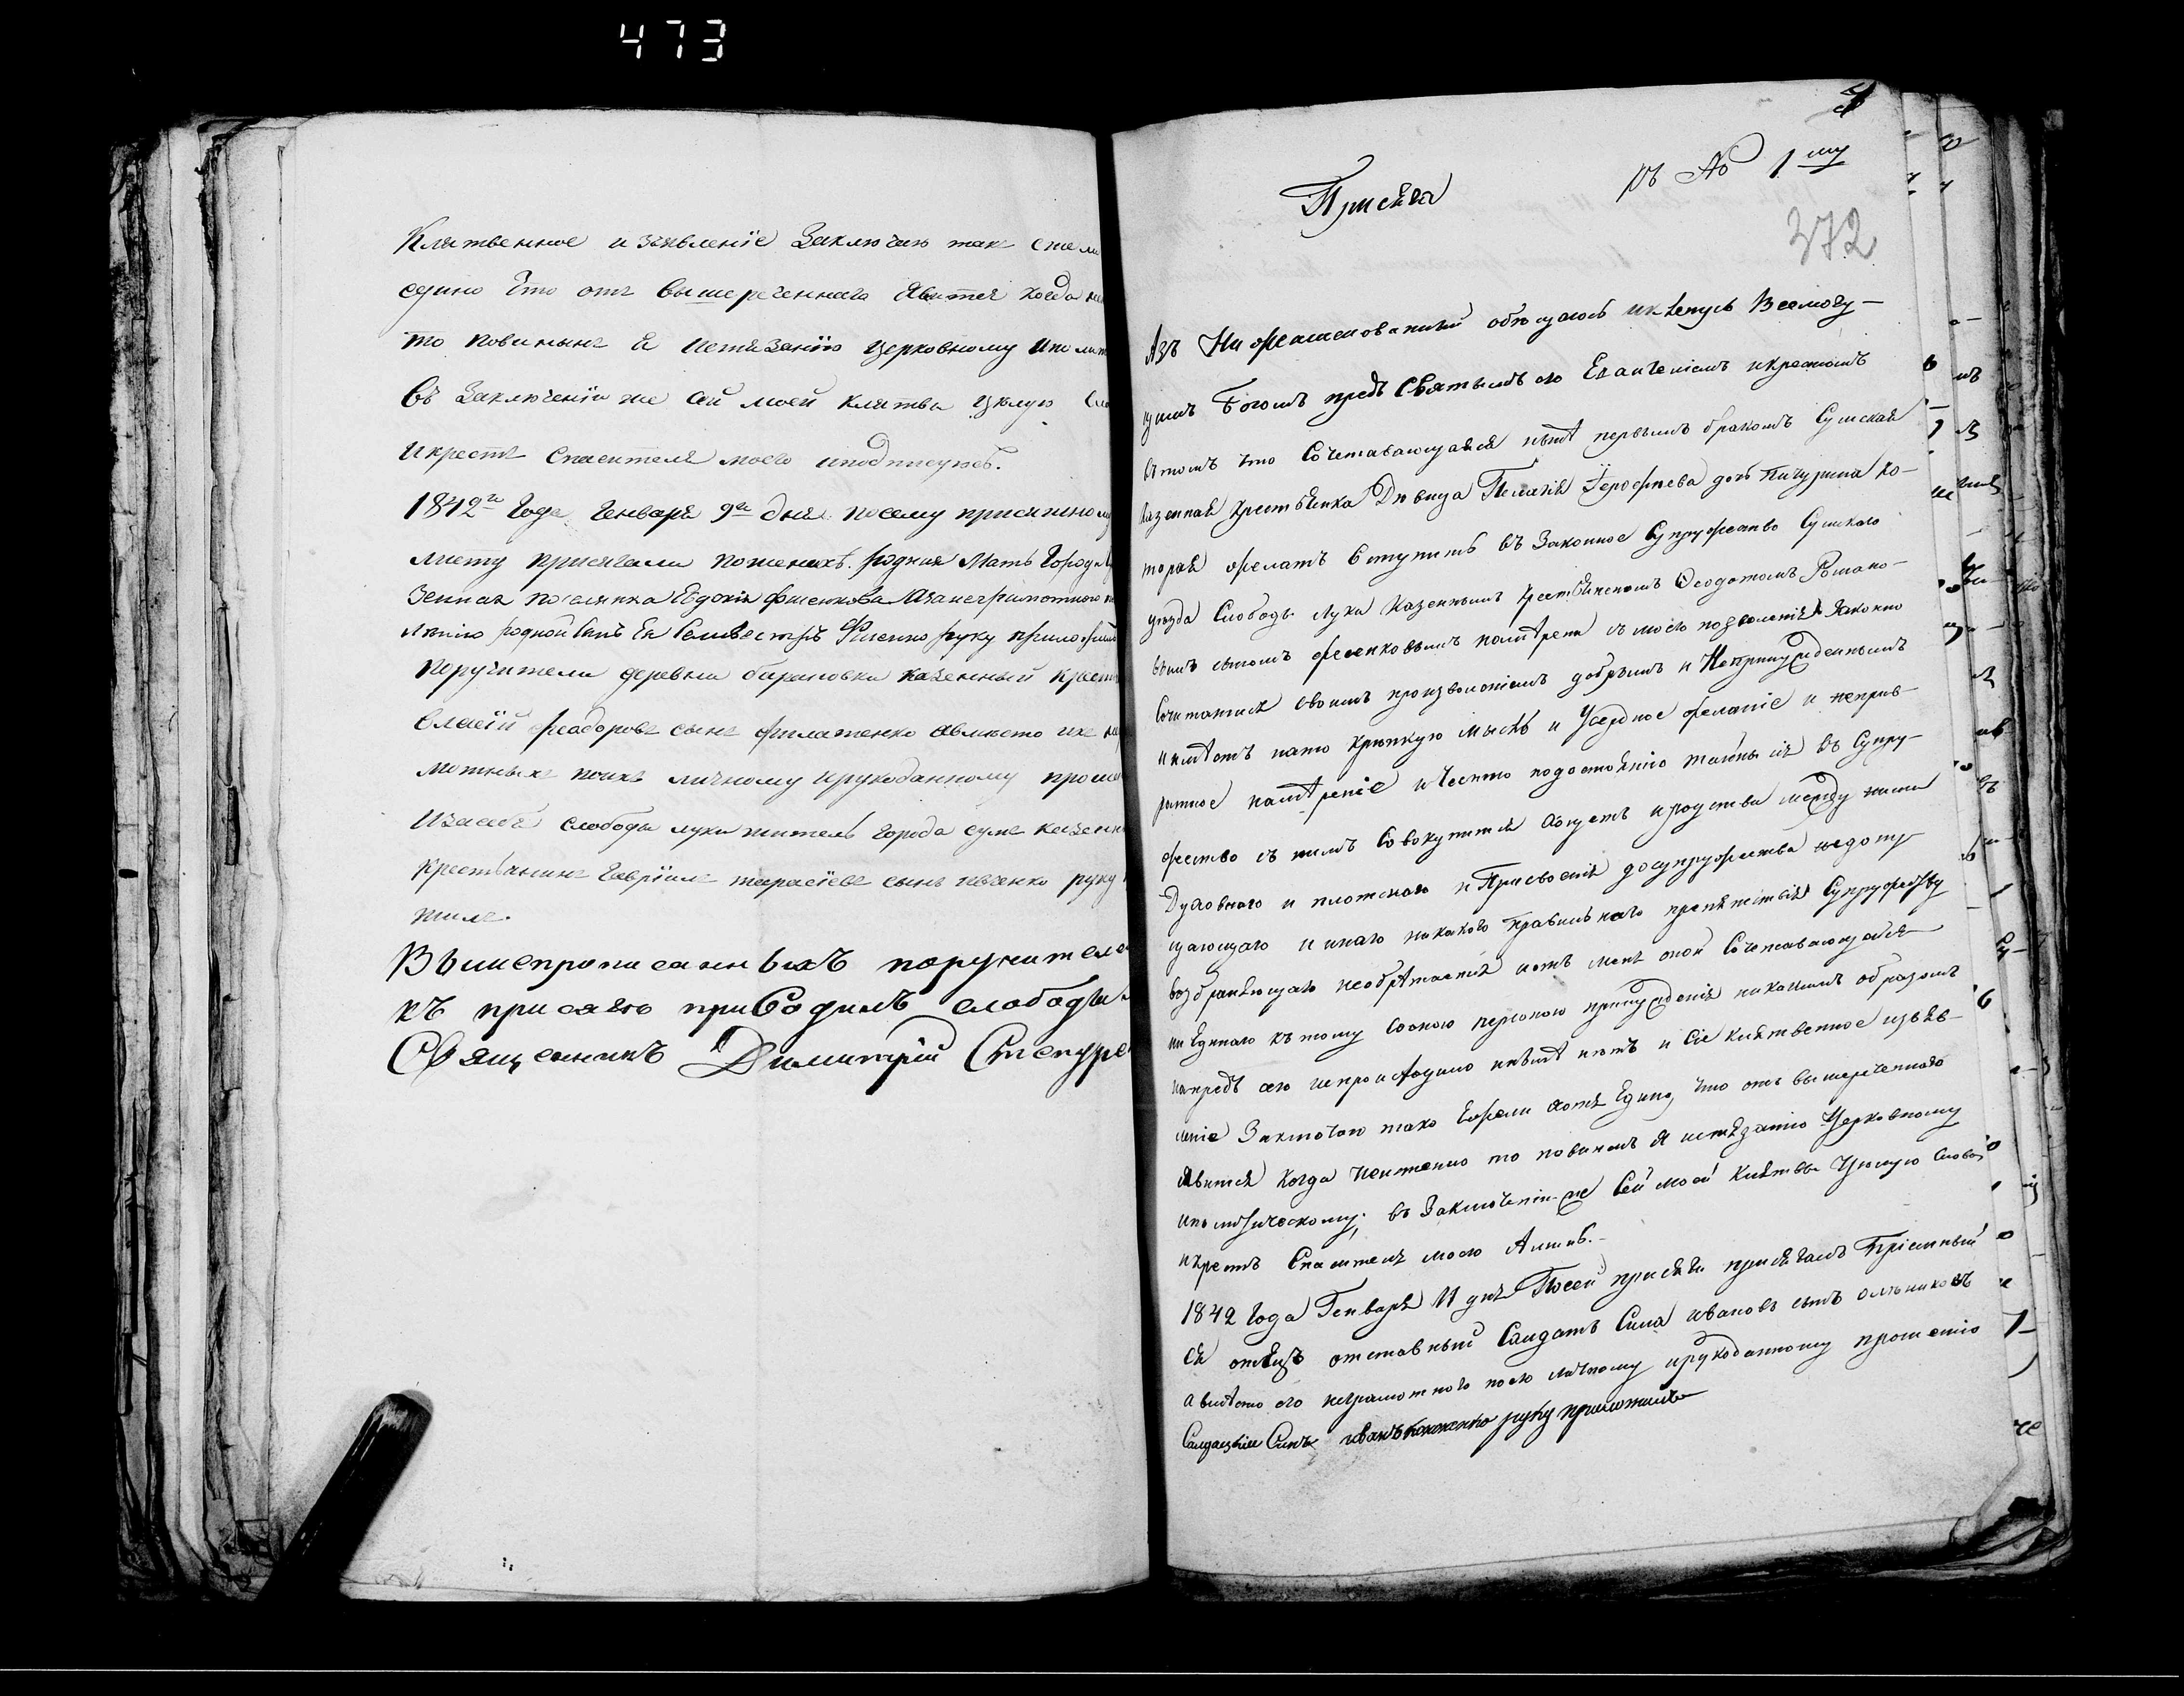 473
Клятвенное изъявленіе Заключаю такъ ежели
едино Что отъ вышереченнаго Явится когда
то повиненъ Я истязанію Церковному иполит
Въ Заключеніи же сей моей клятвы цѣлую Сло
икрестъ Спасителя моего иподписуюсь.
1842го Года Генваря 9го дня посему присяжному
листу присягали поженихѣ. родная Мать Города
Зенная поселянка Евдокія Фисенкова Азанеграмотного
родной Сынъ Ея Селивестръ Фисенко руку приложилъ
Поручители деревни барановки казенный крест
Власій феодоровъ сынъ филатенко авмѣсто ихъ
мотныхъ поихъ личному ирукоданному проше
Изасебя слободы луки житель города сумъ казенн
Крестьянинъ Гавріилъ тарасіевъ сынъ ивченко руку
жилъ.
Вышепрописанныхъ поручителе
къ присягѣ приводилъ слободы
Священникъ Димитрій
3
Присяга
къ № 1му
372
Азъ Нижеименованный обѣщаюсь иклянусь Всемогу-
щимъ Богомъ предъ Святымъ его Евангеліемъ икрестомъ
втомъ что Сочетавающаяся нынѣ первымъ бракомъ Сумская
казенная крестьянка Дѣвица Пелагія Ерофѣева дочь Пичурина ко-
торая желаетъ вступить въ Законное Супружество Сумскаго
уѣзда Слободы Луки казеннымъ крестьяниномъ Феодотомъ Романо-
вымъ сыномъ фесенковымъ намѣрена съ моего позволенія Законно
Сочетатися своимъ произволеніемъ добрымъ и Непринужденнымъ
имѣетъ нато крѣпкую мысль и Усердное желаніе и неприв-
ратное намѣреніе иЧестно подостоянію тайны сія въ Супру-
жество съ нимъ Совокупится хощетъ иродства между ними
Духовнаго и плотскаго и Присвоенія досупружества недопу-
щающаго и инаго никакого правильнаго препятствія Супружеству
возбраняющаго необрѣтается иотъ мене оной Сочетавающейся
ниединаго къ тому Своею персоною принужденія никоимъ образомъ
напредъ сего непроисходило инынѣ нѣтъ и Сіе клятвенное изъяв-
леніе Заключаю тако Ежели хотя Едино, что отъ вышереченнаго
явится когда неистенно то повиненъ Я истязанію Церковному
иполитическому; въ Заключеніи же Сей моей клятвы Цѣлую Слова
икрестъ Спасителя моего Аминь.-
1842 Года Генваря 11 дня Посей присяги присягалъ Пріемный
Ея отецъ отставный Салдатъ Сила ивановъ сынъ
авмѣсто его неграмотного поего личному ирукоданному прошенію
Салдацкій Сынъ иванъ руку приложилъ